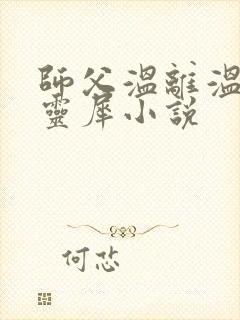 師父溫離溫
靈犀小說
何忿